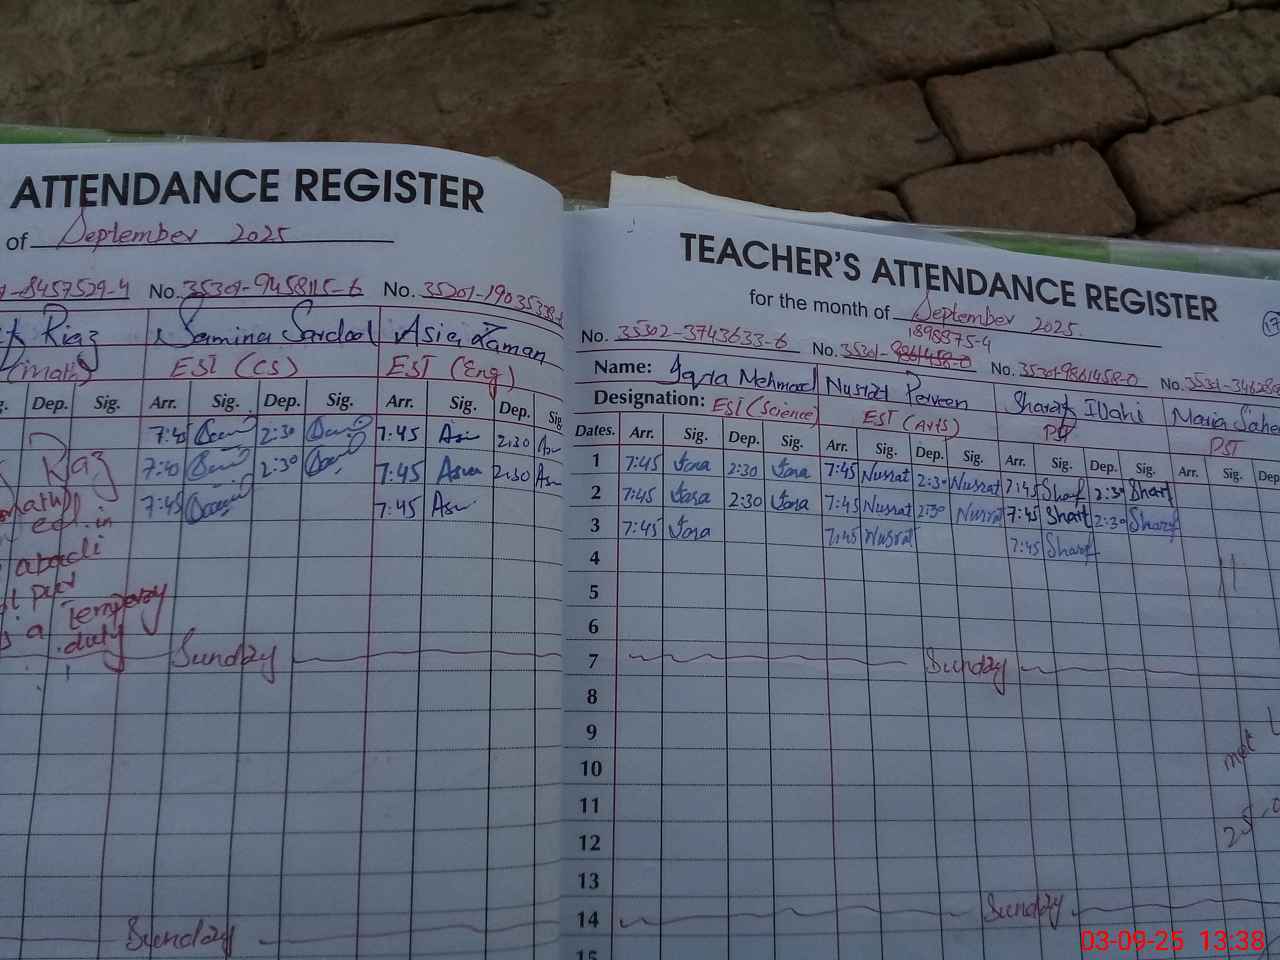 ATTENDANCE REGISTER
of September 2025
-8457529-4 No. 35301-945815-6 No. 35201-19035338-
Riaz Samina Sardool Asia Zaman
(math) EST (CS) EST (Eng)
Dep. Sig. Arr. Sig. Dep. Sig. Arr. Sig. Dep. Sig
7:45 2:30 7:45 Asi 2:30 As
Riaz 7:40 2:30 7:45 Asia 2:30 As
math 7:45 7:45 Asi
edl. in
abadi
pur
is a Temperay
duty
Sunday
Sunday
TEACHER'S ATTENDANCE REGISTER
for the month of September 2025
1898875-4
No. 35302-3743633-6 No. 35301-9861458-0 No. 35301-9861458-0 No. 35301-346286
Name: Iqra Mehmood Nusrat Perveen Sharaf Ilahi Maria Sahe
Designation: EST (Science) EST (Arts) PST
Dates. Arr. Sig. Dep. Sig. Arr. Sig. Dep. Sig. Arr. Sig. Dep. Sig. Arr. Sig. Dep
1 7:45 2:30 7:45 Nusrat 2:30 Nusrat 7:45 Sharf 2:30 Sharf
2 7:45 2:30 7:45 Nusrat 2:30 Nusrat 7:45 Sharf 2:30 Sharf
3 7:45 7:45 Nusrat 7:45 Sharf
4
5
6
7 Sunday
8
9
10
11
12
13
14 Sunday
15
03-09-25 13:38